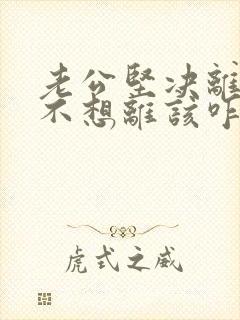 老公坚决離
不想離該咋
虎式之威